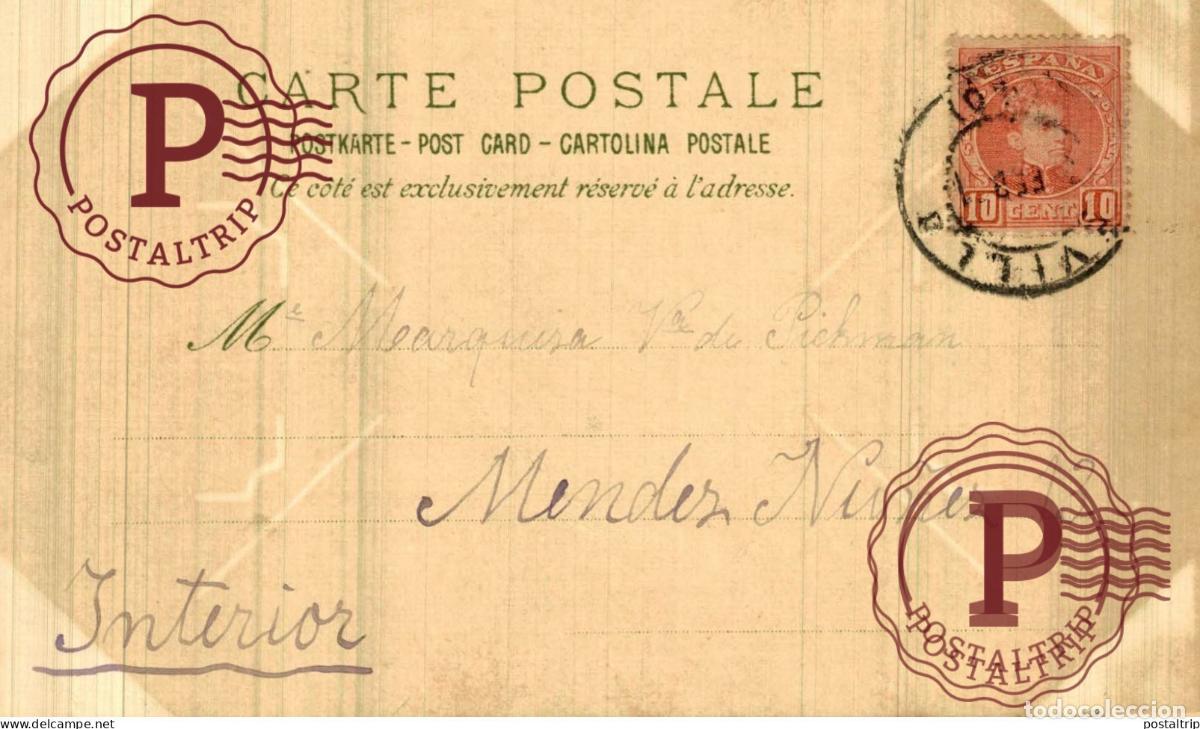 CARTE POSTALE
POSTKARTE - POST CARD - CARTOLINA POSTALE
Ce côté est exclusivement réservé à l'adresse.
ESPAÑA
10 CENT 10
VILLA
Me Marquisa Vda de Pickman
Mendez Nuñez
Interior
POSTALTRIP
POSTALTRIP
POSTALTRIP
todocoleccion
www.delcampe.net
postaltrip